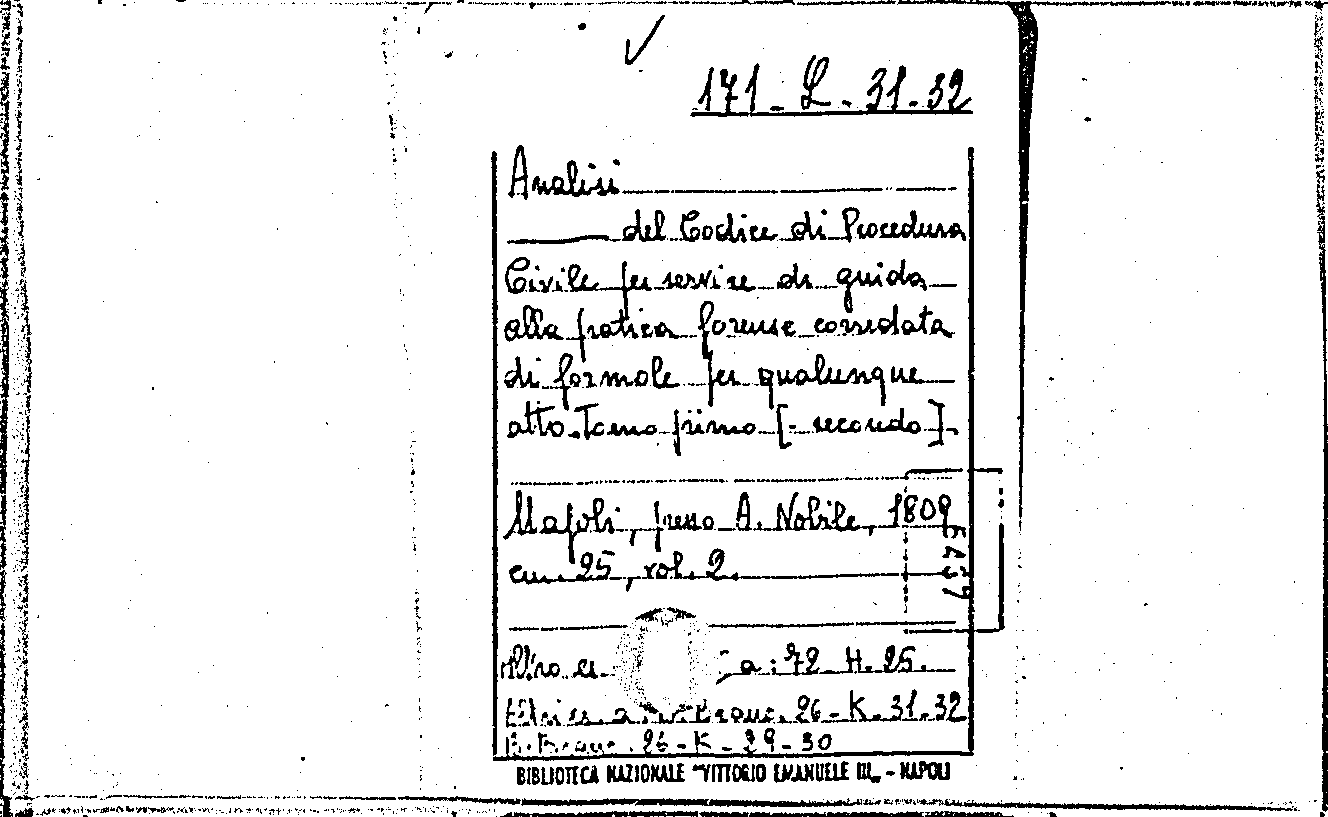 171 - L - 31-32
Analisi
del Codice di Procedura
Civile per servire di guida
alla pratica forense corredata
di formole per qualunque
atto. Tomo primo [- secondo].
Napoli, presso A. Nobile, 1809
cm. 25, vol. 2.
5437
Altro es. a: 72 H. 25.
Branc. 26 - K. 31-32
B. Branc. 26 - K - 29 - 30
BIBLIOTECA NAZIONALE "VITTORIO EMANUELE III„ - NAPOLI